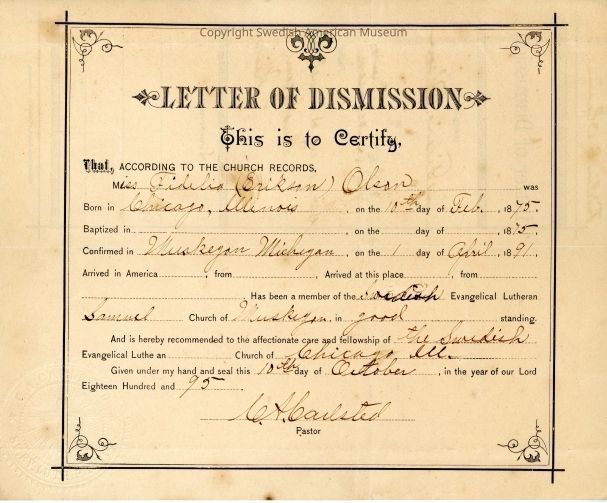 Copyright Swedish American Museum
LETTER OF DISMISSION
This is to Certify,
That, ACCORDING TO THE CHURCH RECORDS,
Miss Fidelia (Erikson) Olson was
Born in Chicago, Illinois on the 10th day of Feb. 1875.
Baptized in on the day of 1875.
Confirmed in Muskegon Michigan on the 1 day of April 1891.
Arrived in America , from Arrived at this place , from
Has been a member of the Swedish Evangelical Lutheran
Samuel Church of Muskegon in good standing.
And is hereby recommended to the affectionate care and fellowship of the Swedish
Evangelical Lutheran Church of Chicago Ill.
Given under my hand and seal this 10th day of October , in the year of our Lord
Eighteen Hundred and 95.
Pastor